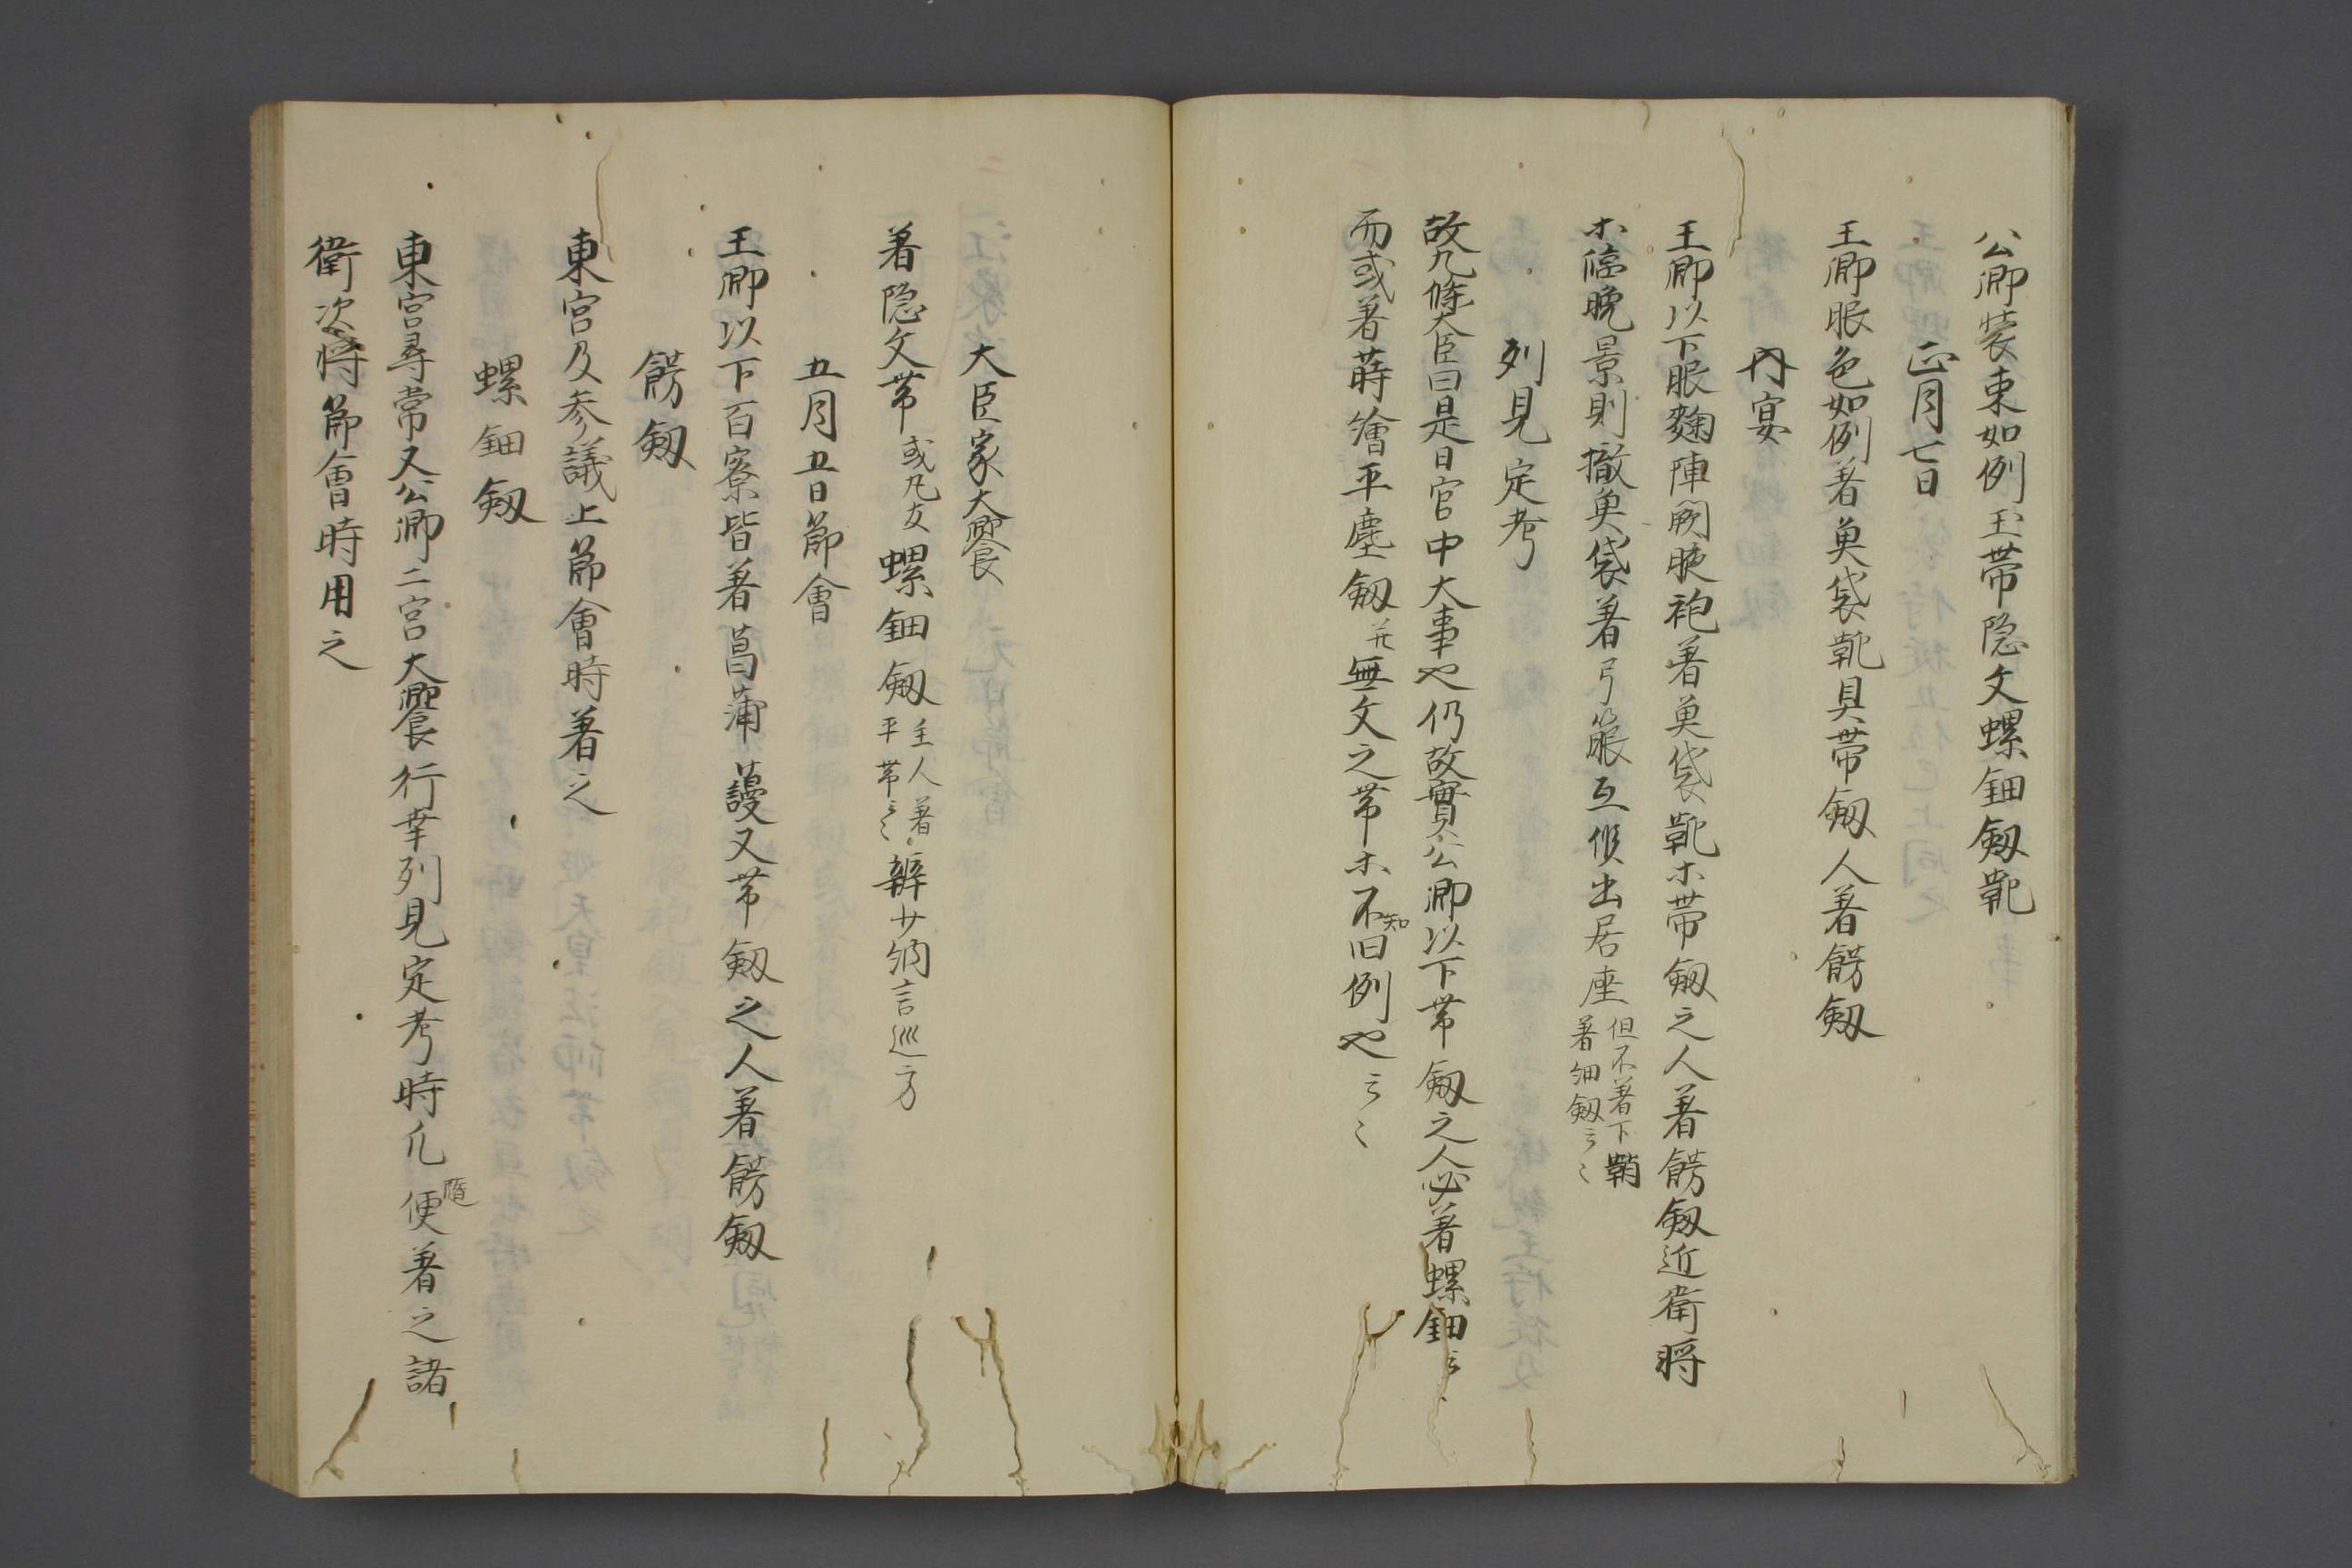 公卿裝束如例玉帯隠文螺鈿釼靴
正月七日
王卿服色如例著魚袋靴具帯釼人著餝釼
内宴
王卿以下服麴陣闕腋袍著魚袋靴木帯釼之人著餝釼近衛将
木臨晚景則撤魚袋著弓箙互候出居座但不著下鞘
著細釼云々
列見定考
故九條大臣曰是日官中大事也仍故實公卿以下帯釼之人必著螺鈿云々
而或著蒔繪平塵釼并無文之帯木不知旧例也云々
大臣家大饗
著隠文帯或凡友螺鈿釼主人著
平帯云々辨少納言巡方
五月五日節會
王卿以下百寮皆著菖蒲蘰又帯釼之人著餝釼
餝釼
東宮及参議上節會時著之
螺鈿釼
東宮尋常又公卿二宮大饗行幸列見定考時凡便著之諸
衛次将節會時用之